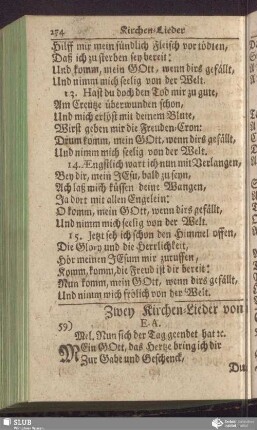 274 Kirchen-Lieder
Hilff mir mein sündlich Fleisch vor tödten,
Daß ich zu sterben sey bereit:
Und komm, mein GOtt, wenn dirs gefällt,
Und nimm mich seelig von der Welt.
13. Hast du doch den Tod mir zu gute,
Am Creutze überwunden schon,
Und mich erlöst mit deinem Blute,
Wirst geben mir die Freuden-Cron:
Drum komm, mein GOtt, wenn dirs gefällt,
Und nimm mich seelig von der Welt.
14. Ængstlich wart ich nun mit Verlangen,
Bey dir, mein JEsu, bald zu seyn,
Ach laß mich küssen deine Wangen,
Ja dort mit allen Engelein:
O komm, mein GOtt, wenn dirs gefällt,
Und nimm mich seelig von der Welt.
15. Jetzt seh ich schon den Himmel offen,
Die Glory und die Herrlichkeit,
Hör meinen JEsum mir zuruffen,
Komm, komm, die Freud ist dir bereit:
Nun komm, mein GOtt, wenn dirs gefällt,
Und nimm mich frölich von der Welt.
Zwey Kirchen-Lieder von
59) E. A.
Mel. Nun sich der Tag geendet hat ꝛc.
MEin GOtt, das Hertze bring ich dir
Zur Gabe und Geschenck,
Du
SLUB
Wir führen Wissen.